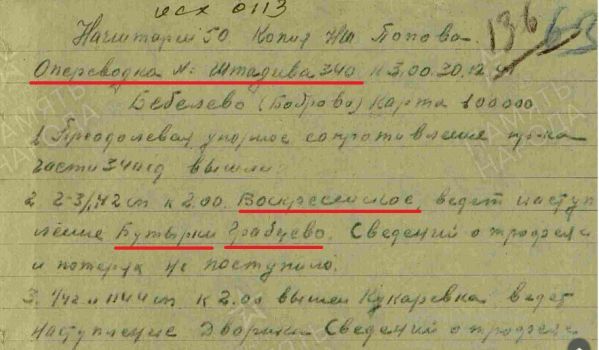 исх 0113
136 63
Начштарм 50 Копия Нш Попова
Опереводка № Штадива 340 к 3.00. 30.12.41
Бебелево (Боброво) Карта 100000
1 Преодолевая упорное сопротивление пр-ка
части 340 сд вышли:
2. 2-3/1142 сп к 2.00. Воскресенское, ведет наступ
ление Бутырки Грабцево. Сведений о трофеях
и потерях не поступило.
3. 1142 и 1144 сп к 2.00 вышел Кукаревка ведет
наступление Дворики Сведений о трофеях